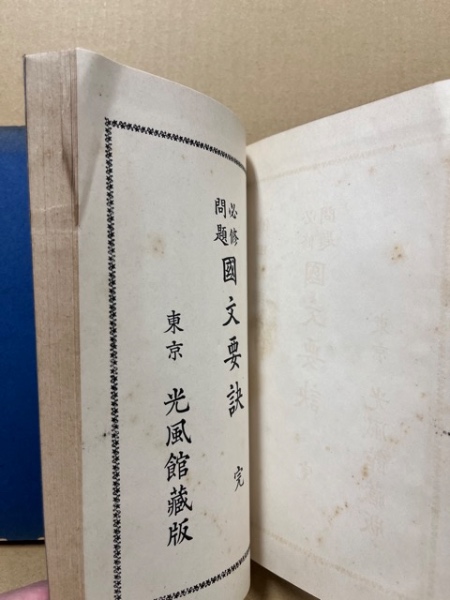 必修問題 國文要訣 完
東京 光風館藏版